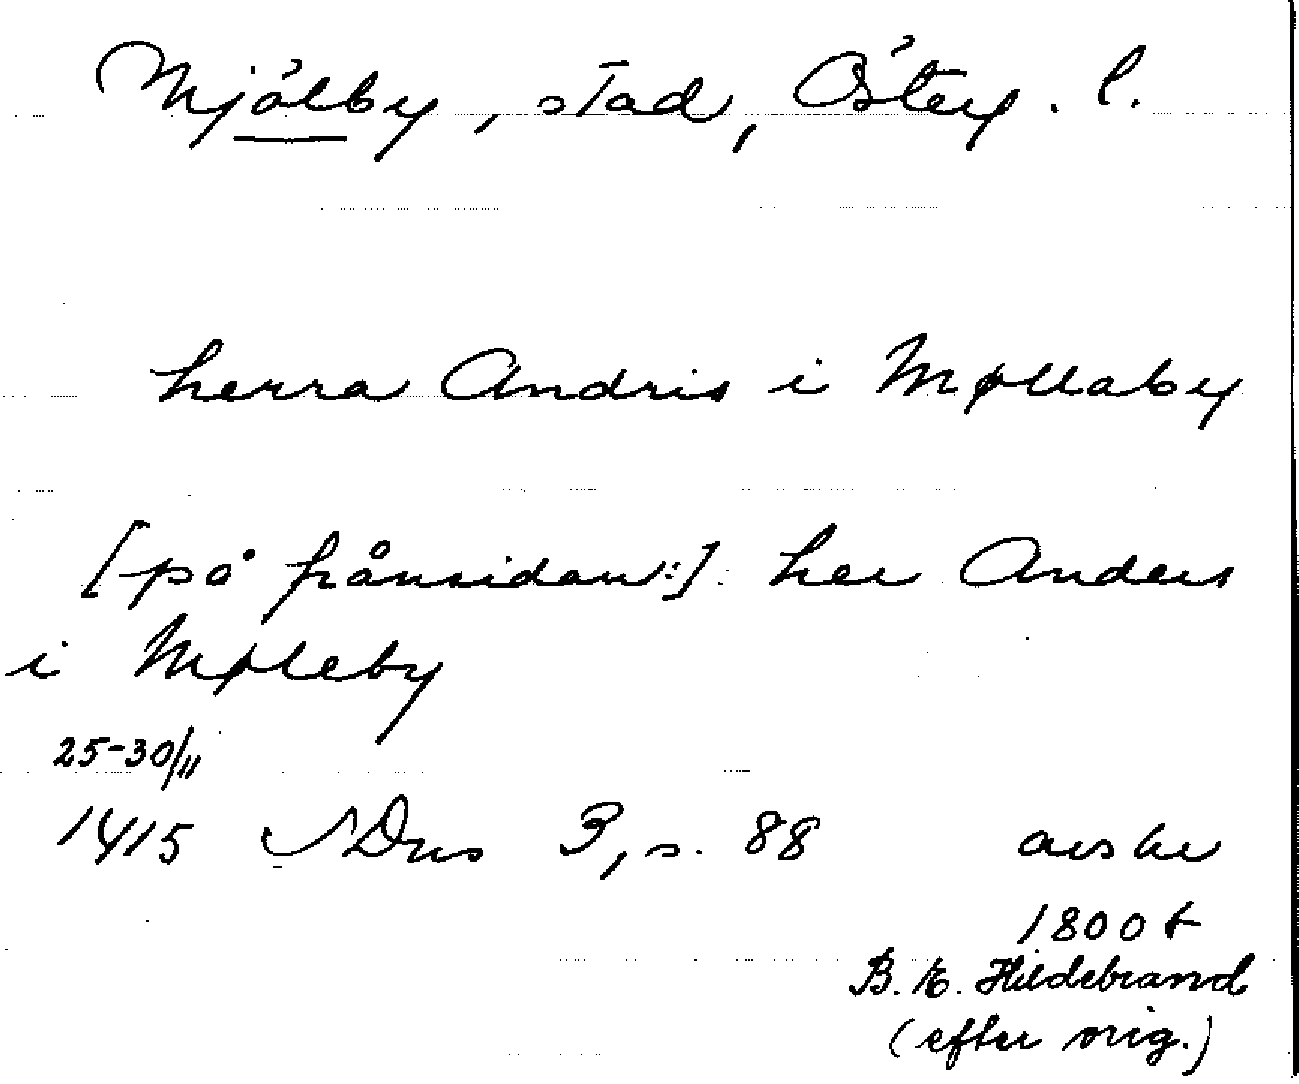 Mjölby, stad, Östeg. l.
herra Andris i Møllaby
[på frånsidan:] her Anders
i Møleby
25-30/11
1415 SDns 3, s. 88 avskr
1800 t
B. E. Hildebrand
(efter orig.)